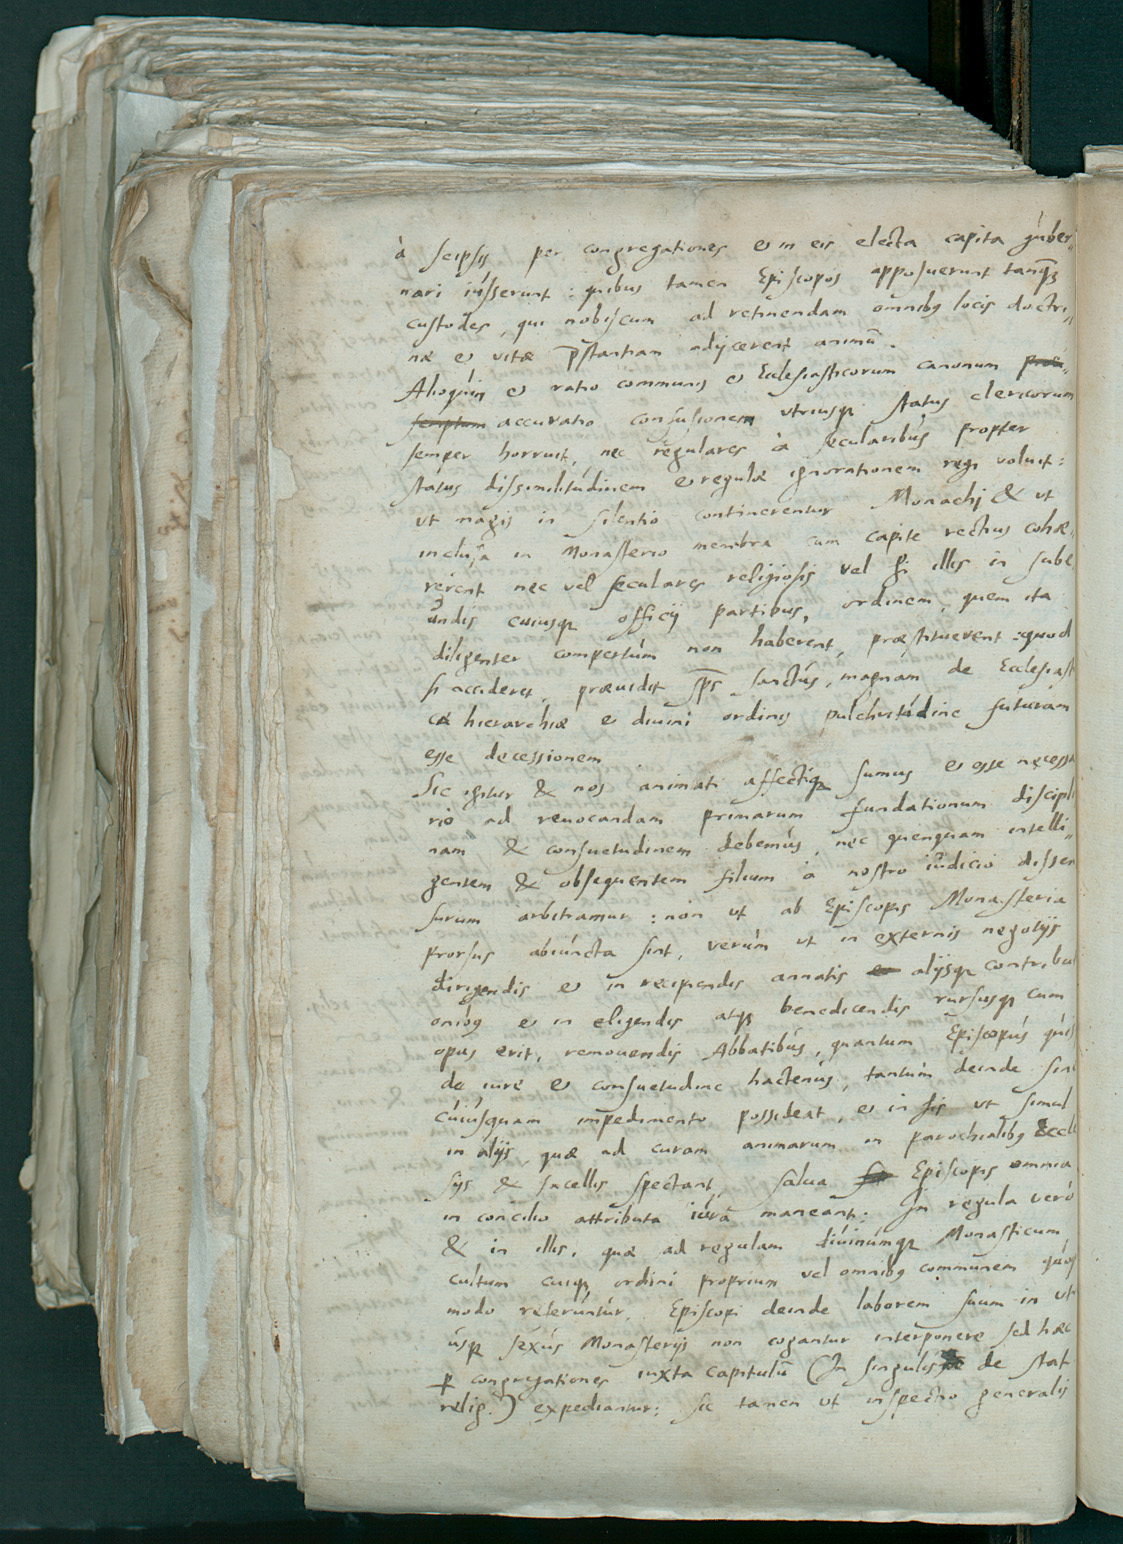 à seipsis per congregationes et in eis electa capita guber„
nari iusserunt : quibus tamen Episcopos apposuerunt tanq̃
custodes, qui nobiscum ad retinendam omnibꝫ locis doctri„
næ et vitæ p̃stantiam adijcerent animũ.
Alioquin et ratio communis et Ecclesiasticorum canonum
accuratio confusionem vtriusqꝫ status clericorum
semper horruit, nec regulares à secularibus propter
status dissimilitudinem et regulæ ignorationem regi voluit :
vt magis in silentio continerentur Monachj & vt
inclusa in Monasterio membra cum capite rectius cohæ„
rerent nec vel seculares religiosis vel hi illis in sube
undis cuiusqꝫ officij partibus, ordinem, quem ita
diligenter compertum non haberent, præstituerent : quod
si accideret, præuidit sp̃s sanctus, magnam de Ecclesiasti
cà hierarchiæ et diuini ordinis pulchritudine futuram
esse decessionem
Sic igitur & nos animati affectiqꝫ sumus et esse necessa
rio ad reuocandam primarum fundationum discipli
nam & consuetudinem debemus, nec quenquam intelli„
gentem & obsequentem filium à nostro iudicio dissen
surum arbitramur : non vt ab Episcopis Monasteria
prorsus abiuncta sint, verum vt in externis negotijs
dirigendis et in recipiendis annatis alijsqꝫ contributi
onibꝫ et in eligendis atqꝫ benedicendis rursusqꝫ cum
opus erit, remouendis Abbatibus, quantum Episcopus quis
de iure et consuetudine hactenus, tantum deinde sine
cuiusquam impedimento possideat, et in his vt simul
in alijs, quæ ad curam animarum in parochialibꝫ Eccle
sijs & sacellis spectant, salua Episcopis omnia
in concilio attributa iura maneant : In regula verò
& in illis, quæ ad regulam diuinumqꝫ Monasticum
cultum cuiqꝫ ordini proprium vel omnibꝫ communem quoq
modo referuntur, Episcopi deinde laborem suum in vt
usqꝫ sexus Monasterijs non cogantur interponere sed hæc
ꝑ congregationes iuxta Capitulũ (In singulis de stat
relig.) expediantur : sic tamen vt inspectio generalis